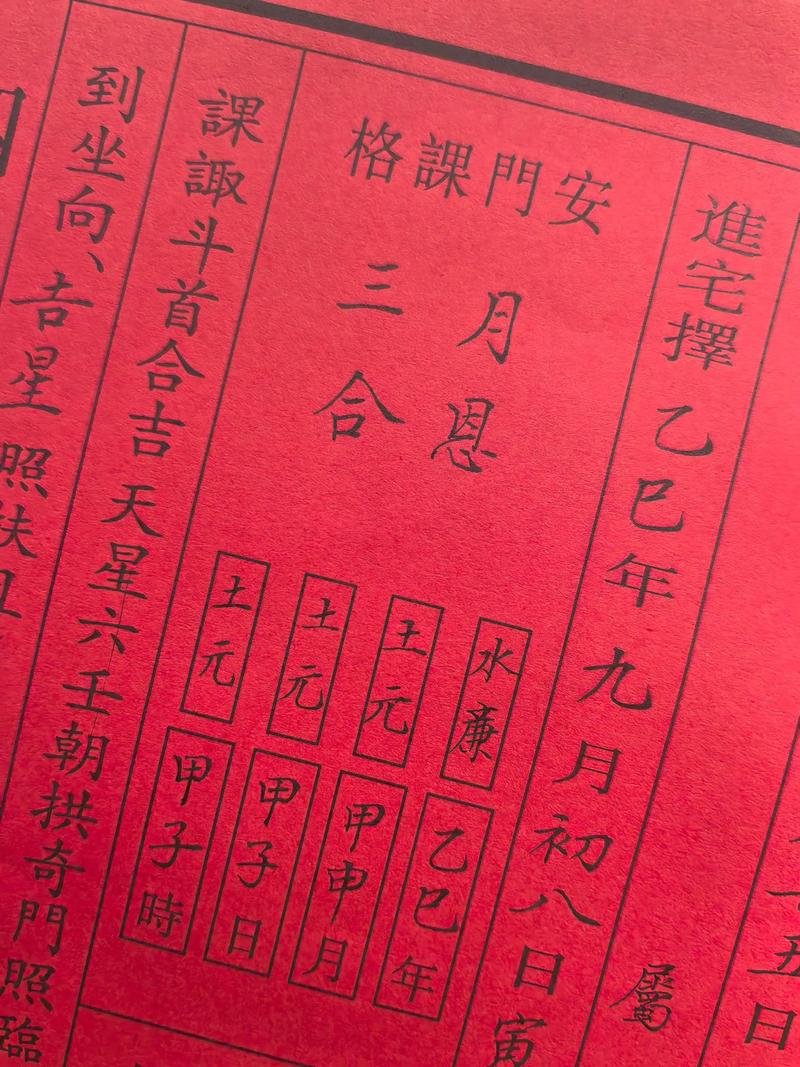 五日
屬
進宅擇 乙巳年 九月初八日寅
安門課格
月恩
三合
水廉
土元
土元
土元
乙巳年
甲申月
甲子日
甲子時
課諏斗首合吉 天星六壬朝拱奇門照臨
到坐向、吉星照扶